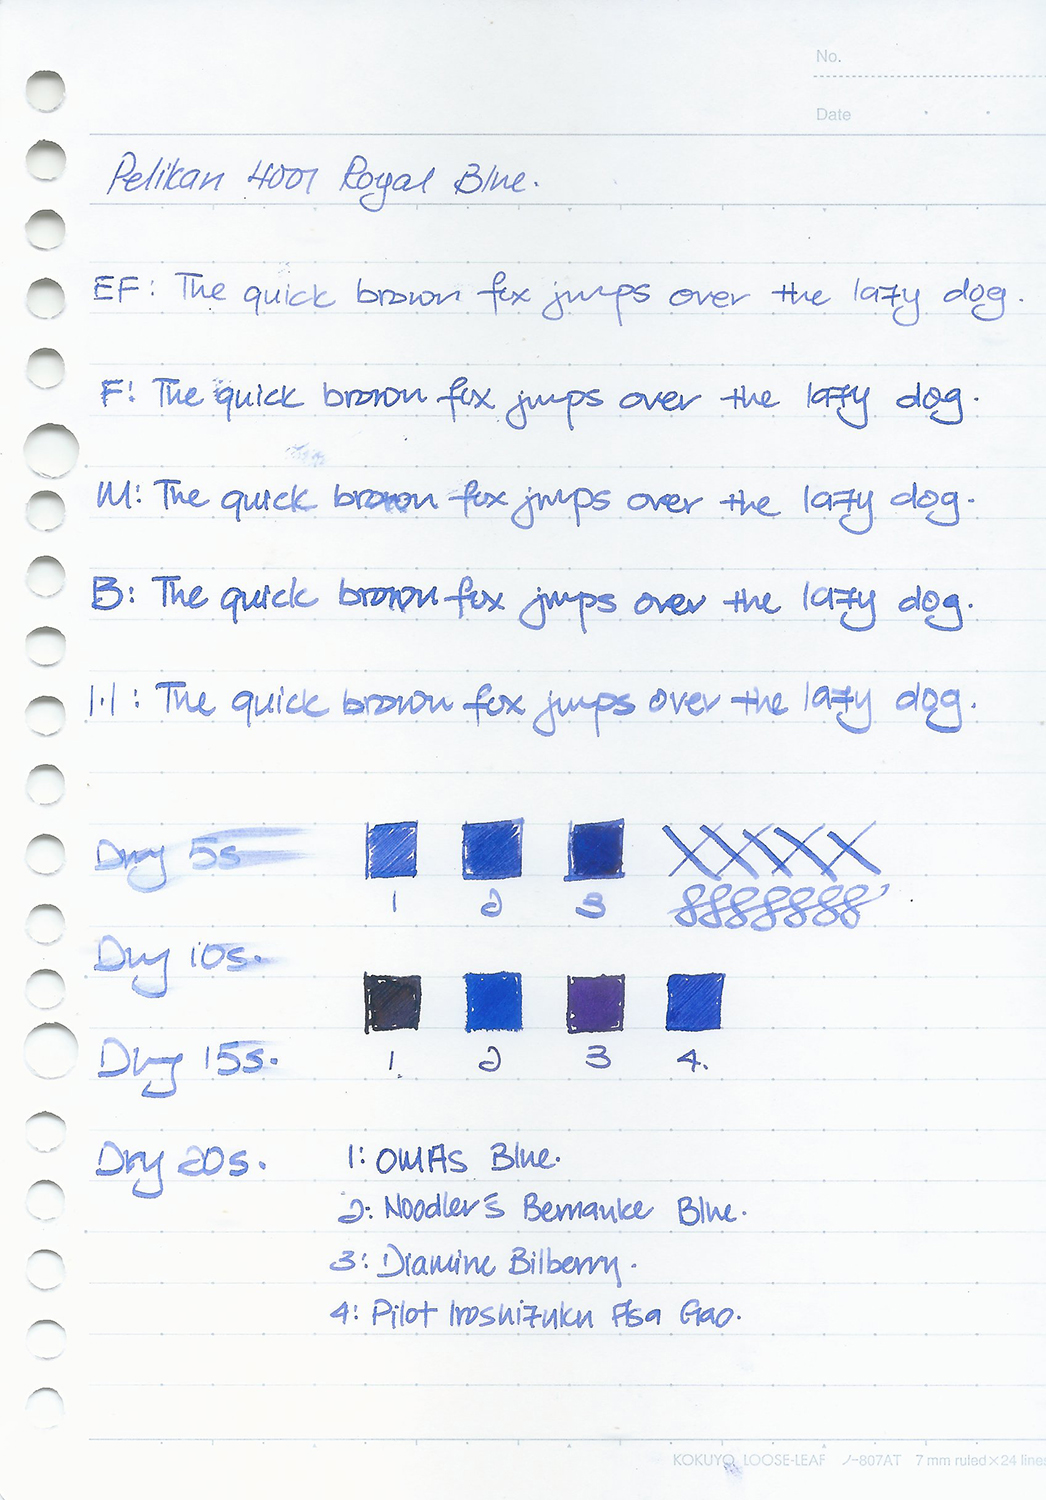 No.
Date
Pelikan 4001 Royal Blue.
EF: The quick brown fox jumps over the lazy dog.
F: The quick brown fox jumps over the lazy dog.
M: The quick brown fox jumps over the lazy dog.
B: The quick brown fox jumps over the lazy dog.
1.1: The quick brown fox jumps over the lazy dog.
Dry 5s
1 2 3
Dry 10s.
Dry 15s.
1. 2 3 4.
Dry 20s.
1: OMAS Blue.
2: Noodler's Bernanke Blue.
3: Diamine Bilberry.
4: Pilot Iroshizuku Asa Gao.
KOKUYO LOOSE-LEAF ノ-807AT 7 mm ruled×24 lines